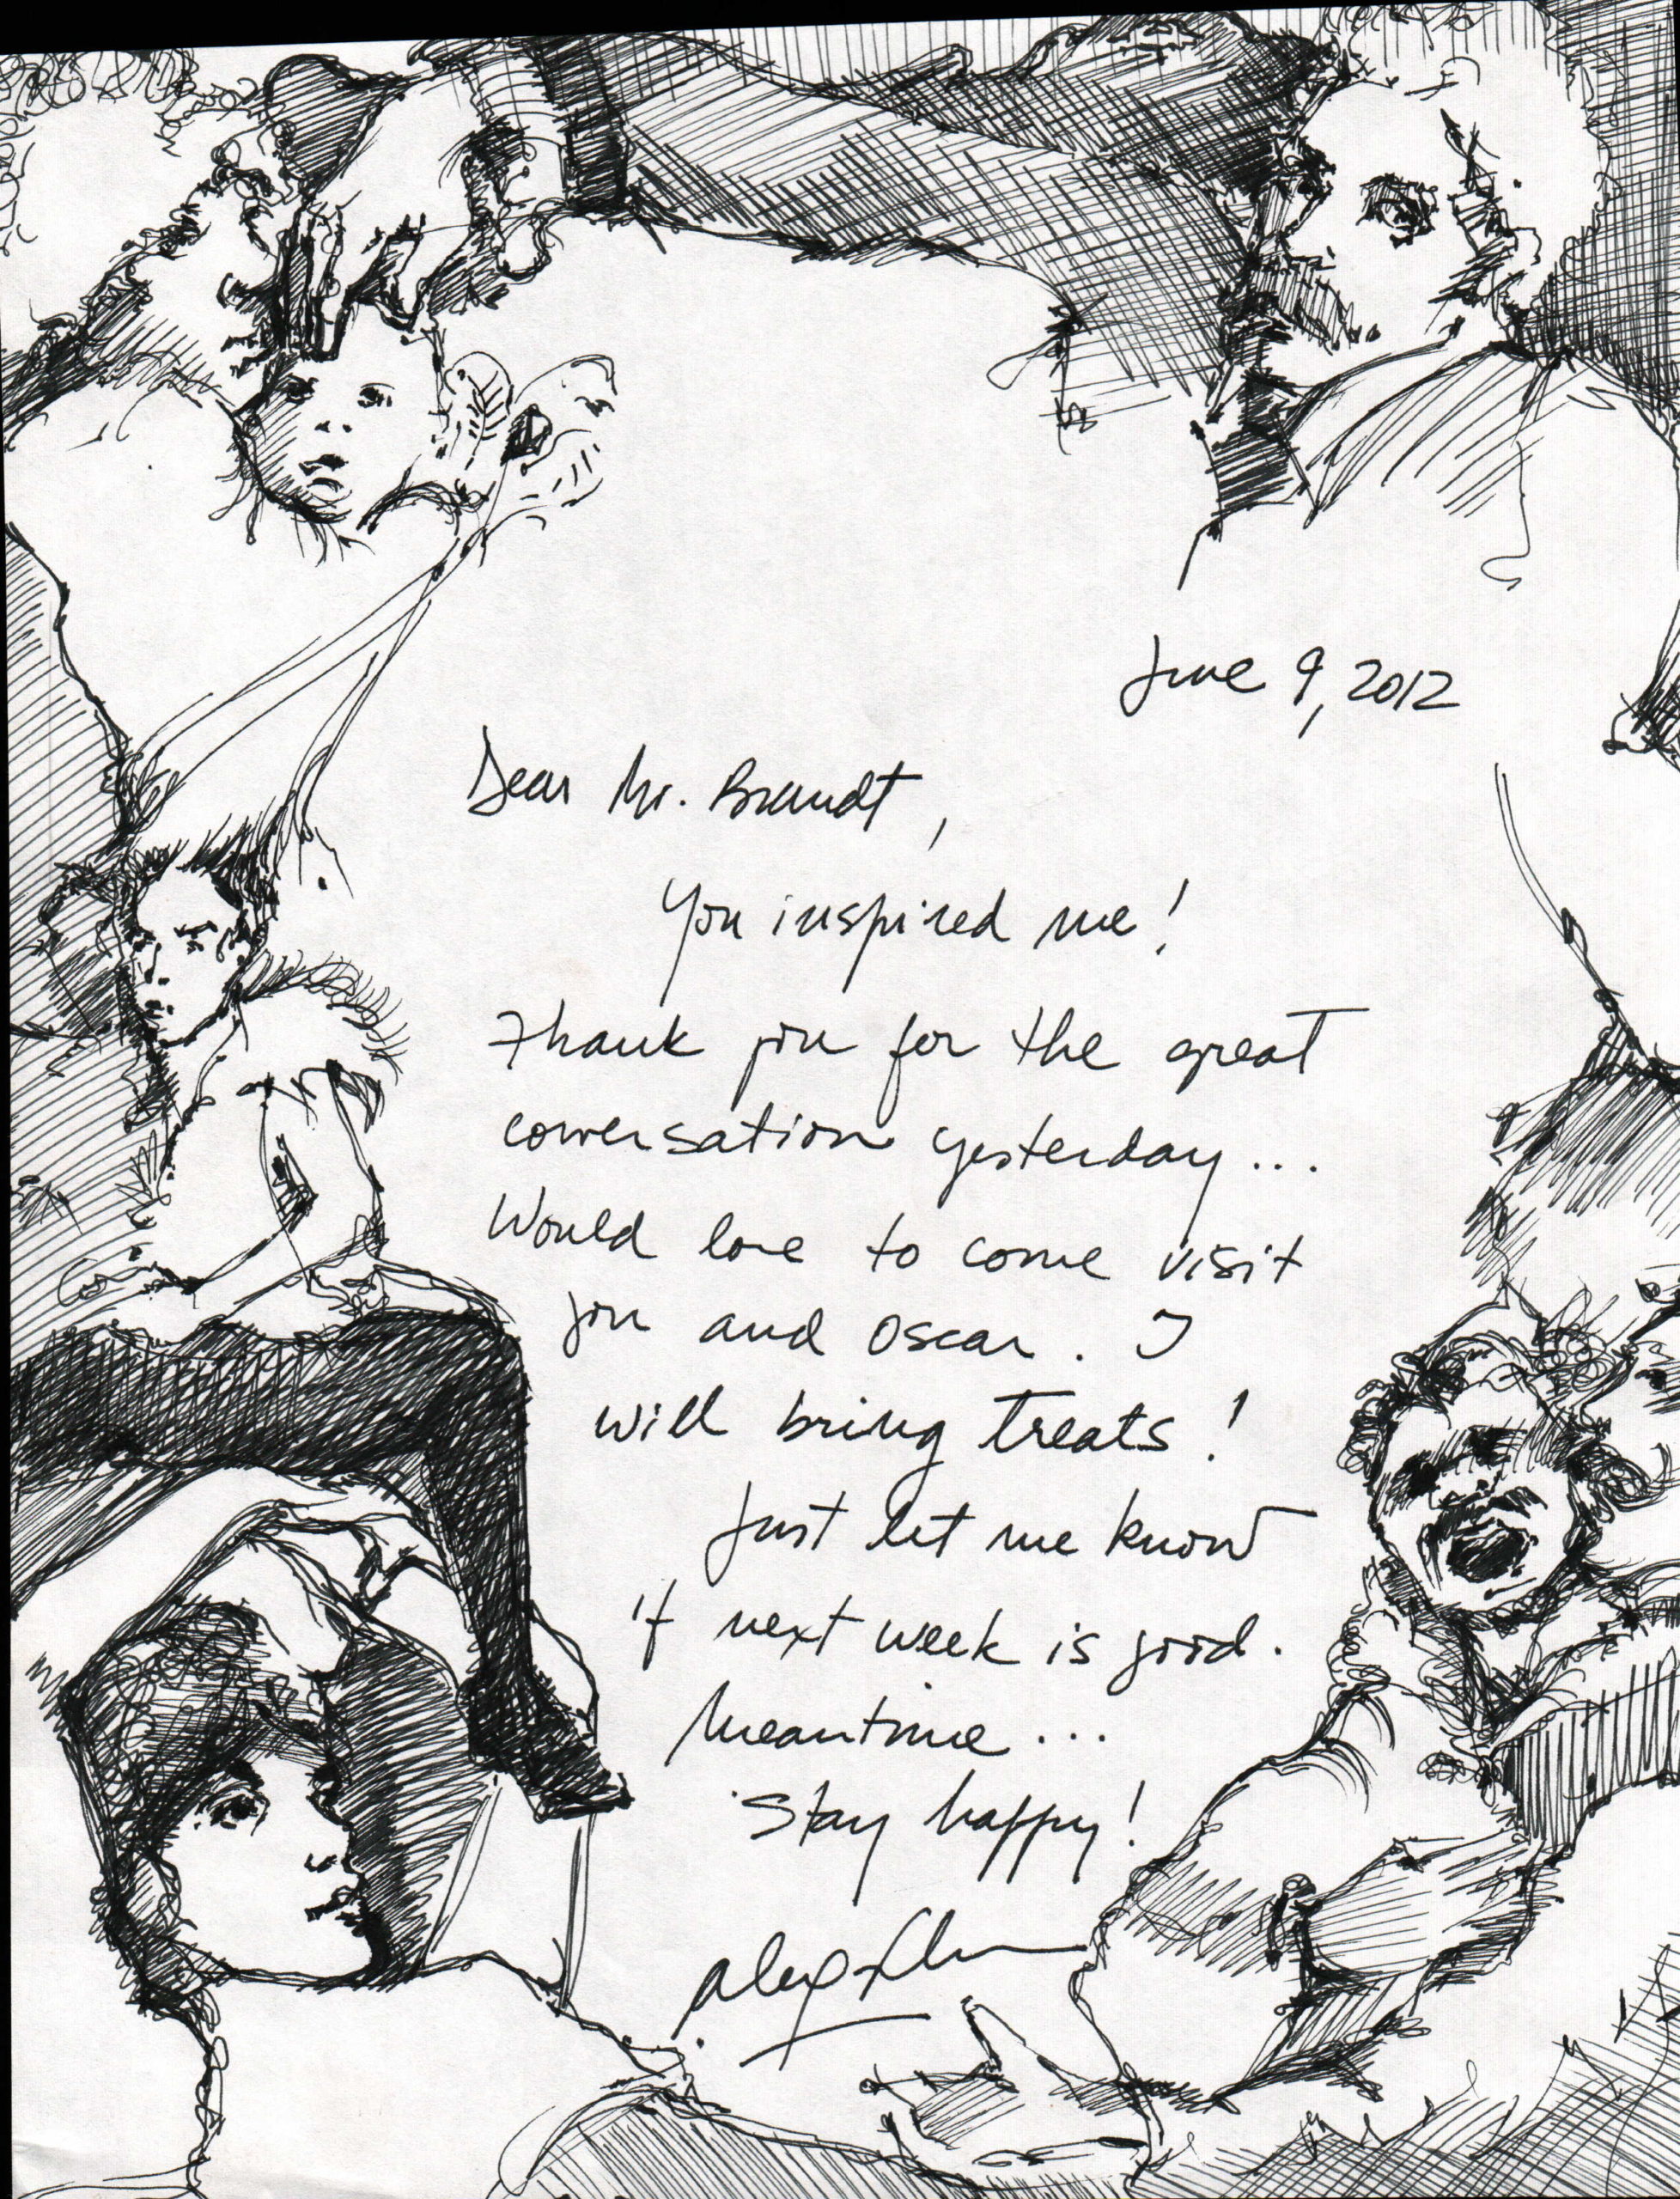 June 9, 2012
Dear Mr. Brandt,
You inspired me!
Thank you for the great
conversation yesterday...
Would love to come visit
you and Oscar. I
will bring treats!
Just let me know
if next week is good.
Meantime...
Stay happy!